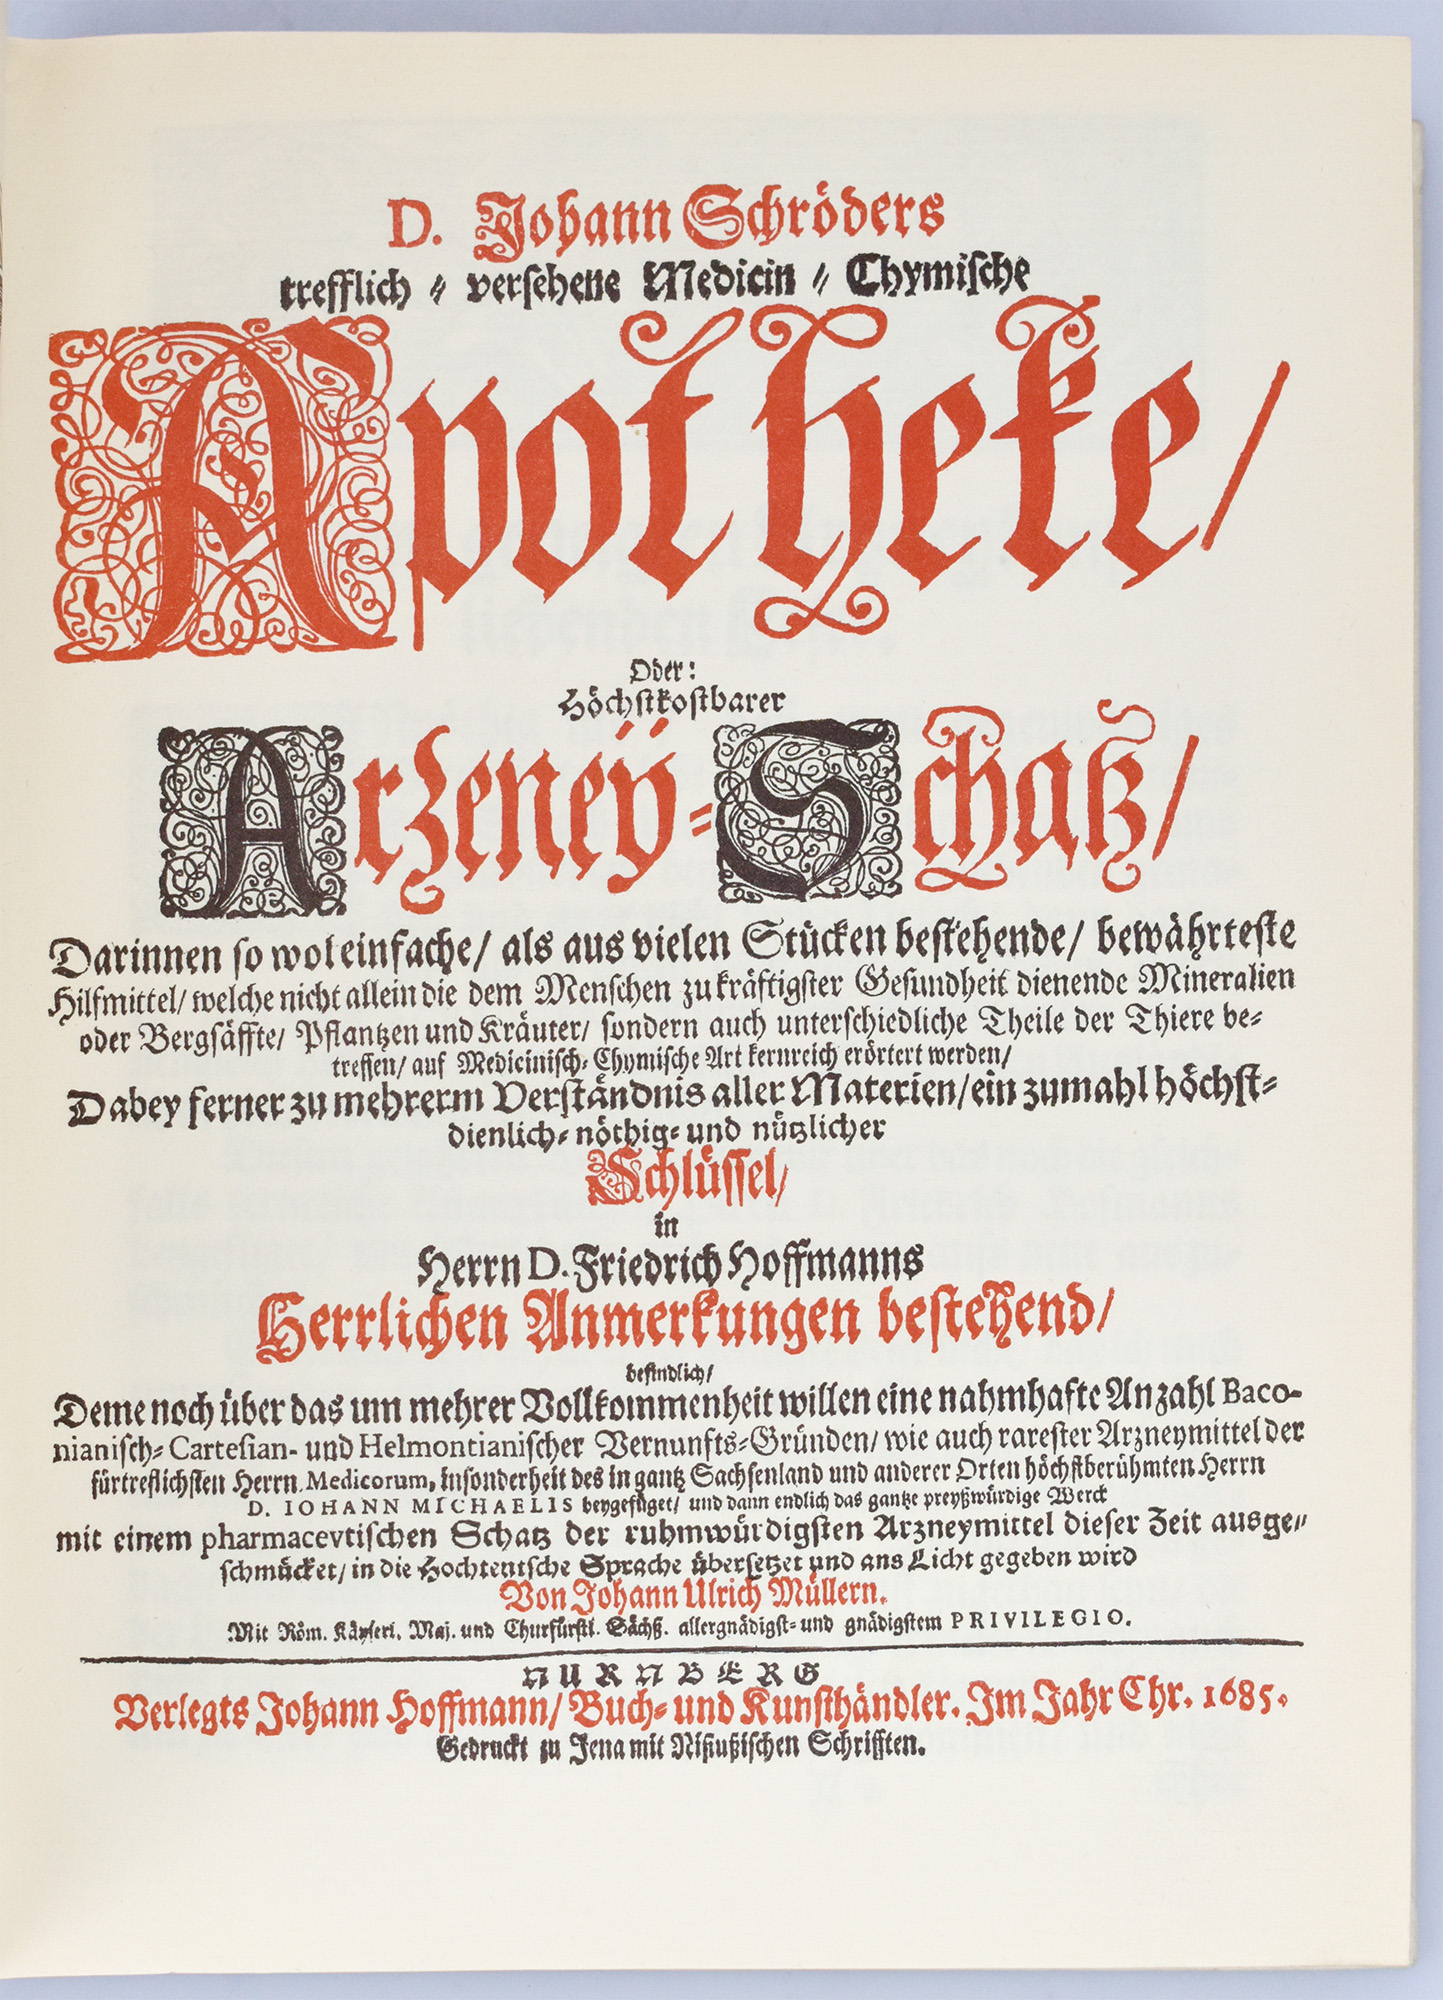 D. Johann Schröders
trefflich⸗versehene Medicin⸗Chymische
Apotheke/
Oder:
Höchstkostbarer
Arzeneÿ⸗Schatz/
Darinnen so wol einfache/ als aus vielen Stücken bestehende/ bewährteste
Hilfmittel/ welche nicht allein die dem Menschen zu kräftigster Gesundheit dienende Mineralien
oder Bergsäffte/ Pflantzen und Kräuter/ sondern auch unterschiedliche Theile der Thiere be⸗
treffen/ auf Medicinisch⸗Chymische Art kernreich erörtert werden/
Dabey ferner zu mehrerm Verständnis aller Materien/ ein zumahl höchst⸗
dienlich⸗ nöthig⸗ und nützlicher
Schlüssel/
in
Herrn D. Friedrich Hoffmanns
Herrlichen Anmerkungen bestehend/
befindlich/
Deme noch über das um mehrer Vollkommenheit willen eine nahmhafte Anzahl Baco-
nianisch⸗ Cartesian- und Helmontianischer Vernunfts⸗Gründen/ wie auch rarester Arzneymittel der
fürtreflichsten Herrn Medicorum, insonderheit des in gantz Sachsenland und anderer Orten höchstberühmten Herrn
D. IOHANN MICHAELIS beygefüget/ und dann endlich das gantze preyßwürdige Werck
mit einem pharmacevtischen Schatz der ruhmwürdigsten Arzneymittel dieser Zeit ausge⸗
schmücket/ in die Hochteutsche Sprache übersetzet und ans Licht gegeben wird
Von Johann Ulrich Müllern.
Mit Röm. Käyserl. Maj. und Churfürstl. Sächß. allergnädigst⸗ und gnädigstem PRIVILEGIO.
NURNBERG
Verlegts Johann Hoffmann/ Buch⸗ und Kunsthändler. Im Jahr Chr. 1685.
Gedruckt zu Jena mit Nisiußischen Schrifften.